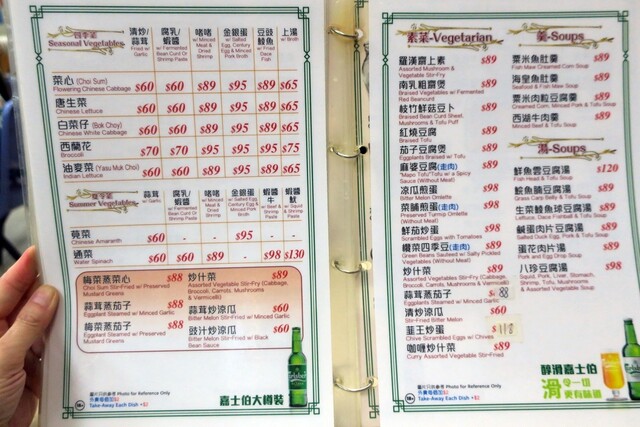 四季菜
Seasonal Vegetables
清炒/蒜茸
Fried w/ Garlic
腐乳/蝦醬
w/ Fermented Bean Curd Or Shrimp Paste
啫啫
w/ Minced Meat & Dried Shrimp
金銀蛋
w/ Salted Egg, Century Egg & Minced Pork Broth
豆豉鯪魚
w/ Fried Dace
上湯
w/ Broth
菜心 (Choi Sum)
Flowering Chinese Cabbage $60 $60 $89 $95 $89 $65
唐生菜
Chinese Lettuce $60 $60 $89 $95 $89 $65
白菜仔 (Bok Choy)
Chinese White Cabbage $60 $60 $89 $95 $89 $65
西蘭花
Broccoli $70 $70 $95 $95 $95 $75
油麥菜 (Yasu Muk Choi)
Indian Lettuce $60 $60 $89 $95 $89 $65
夏季菜
Summer Vegetables
蒜茸
w/ Garlic
腐乳/蝦醬
w/ Fermented Bean Curd Or Shrimp Paste
啫啫
w/ Minced Meat & Dried Shrimp
金銀蛋
w/ Salted Egg, Century Egg & Minced Pork Broth
蝦醬牛
w/ Beef & Shrimp Paste
蝦醬魷
w/ Squid & Shrimp Paste
莧菜
Chinese Amaranth $60 - - $95 - -
通菜
Water Spinach $60 $60 $89 - $98 $130
梅菜蒸菜心 $88
Choi Sum Stir-Fried w/ Preserved Mustard Greens
蒜茸蒸茄子 $88
Eggplant Steamed w/ Minced Garlic
梅菜蒸茄子 $88
Eggplant Steamed w/ Preserved Mustard Greens
炒什菜 $89
Assorted Vegetables Stir-Fry (Cabbage, Broccoli, Carrots, Mushrooms & Vermicelli)
蒜茸炒涼瓜 $60
Bitter Melon Stir-Fried w/ Minced Garlic
豉汁炒涼瓜 $60
Bitter Melon Stir-Fried w/ Black Bean Sauce
18+
圖片只供參考 Photo for Reference Only
外賣每個加$2
Take-Away Each Dish +$2
嘉士伯大樽裝
Carlsberg
素菜-Vegetarian
羅漢齋上素 $89
Assorted Mushroom & Vegetable Stir-Fry
南乳粗齋煲 $89
Braised Vegetables w/ Fermented Red Beancurd
枝竹鮮菇豆卜 $89
Braised Bean Curd Sheet, Mushrooms & Tofu Puff
紅燒豆腐 $89
Braised Tofu
茄子豆腐煲 $89
Eggplants Braised w/ Tofu
麻婆豆腐(走肉) $89
"Mapo Tofu"Tofu w/ a Spicy Sauce (Without Meat)
凉瓜煎蛋 $98
Bitter Melon Omlette
菜脯煎蛋(走肉) $98
Preserved Turnip Omlette (Without Meat)
鮮茄炒蛋 $98
Scrambled Eggs w/ Tomatoes
欖菜四季豆(走肉) $89
Green Beans Sautéed w/ Salty Pickled Vegetables (Without Meat)
炒什菜 $89
Assorted Vegetables Stir-Fry (Cabbage, Broccoli, Carrots, Mushrooms & Vermicelli)
蒜茸蒸茄子 $88
Eggplants Steamed w/ Minced Garlic
清炒凉瓜 $60
Stir-Fried Bitter Melon
韮王炒蛋 $118
Chive Scrambled Eggs w/ Chives
咖喱炒什菜 $89
Curry Assorted Vegetable Stir-Fried
羹-Soups
粟米魚肚羹 $89
Fish Maw Creamed Corn Soup
海皇魚肚羹 $89
Seafood & Fish Maw Soup
粟米肉粒豆腐羹 $89
Creamed Corn, Minced Pork & Tofu Soup
西湖牛肉羹 $89
Minced Beef & Tofu Soup
湯-Soups
鮮魚雲豆腐湯 $120
Fish Head & Tofu Soup
鯇魚腩豆腐湯 $89
Grass Carp Belly & Tofu Soup
生菜鯪魚球豆腐湯 $89
Lettuce, Dace Fishball & Tofu Soup
鹹蛋肉片豆腐湯 $89
Salted Duck Egg, Pork & Tofu Soup
蛋花肉片湯 $89
Pork and Egg Drop Soup
八珍豆腐湯 $98
Squid, Pork, Liver, Stomach, Shrimp, Tofu, Mushrooms & Assorted Vegetable Soup
18+
圖片只供參考 Photo for Reference Only
外賣每個加$2
Take-Away Each Dish +$2
醇滑嘉士伯
滑令一切
更有味道